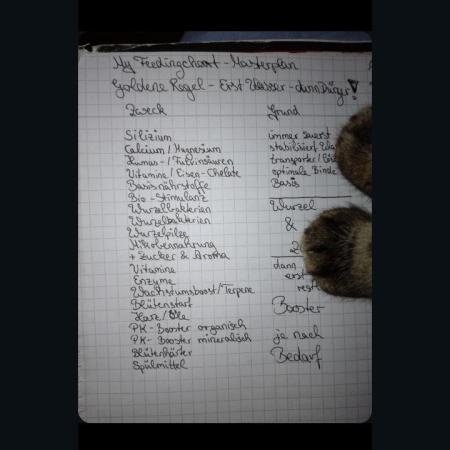 My Feedingchart - Masterplan
Goldene Regel - Erst Wasser - dann Dünger!
Zweck Grund
Silizium immer zuerst
Calcium / Magnesium stabilisiert
Humus- / Fulvinsäuren transporter /
Vitamine / Eisen-Chelate optimale
Basisnährstoffe Basis
Bio-Stimulanz
Wurzelbakterien Wurzel
Wurzelbakterien &
Wurzelpilze
Mikrobennahrung
+ Zucker & Aroma
Vitamine dann
Enzyme erst
Wachstumsboost / Terpene rest
Blütenstart
Harz / Öle Booster
PK-Booster organisch
PK-Booster mineralisch je nach
Blütenhärter Bedarf
Spülmittel